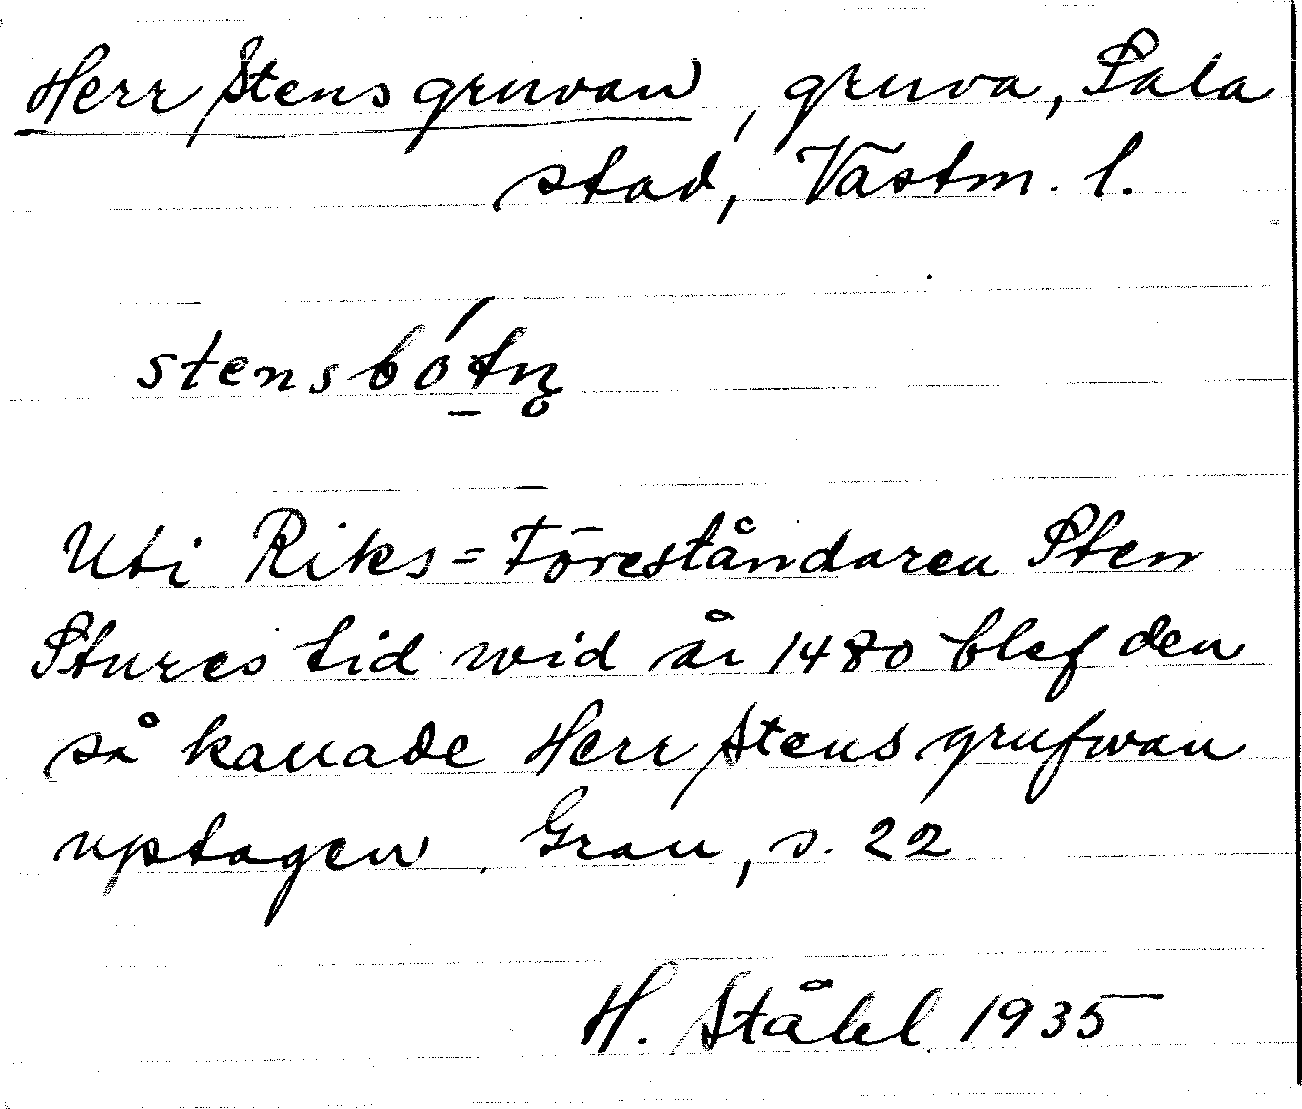 Herr Stensgruvan, gruva, Sala
stad, Västm. l.
stensbótn̥
Uti Riks=Föreståndaren Sten
Stures tid wid år 1480 blef den
så kallade Herr Stens grufwan
uptagen. Grau, s. 22
H. Ståhl 1935